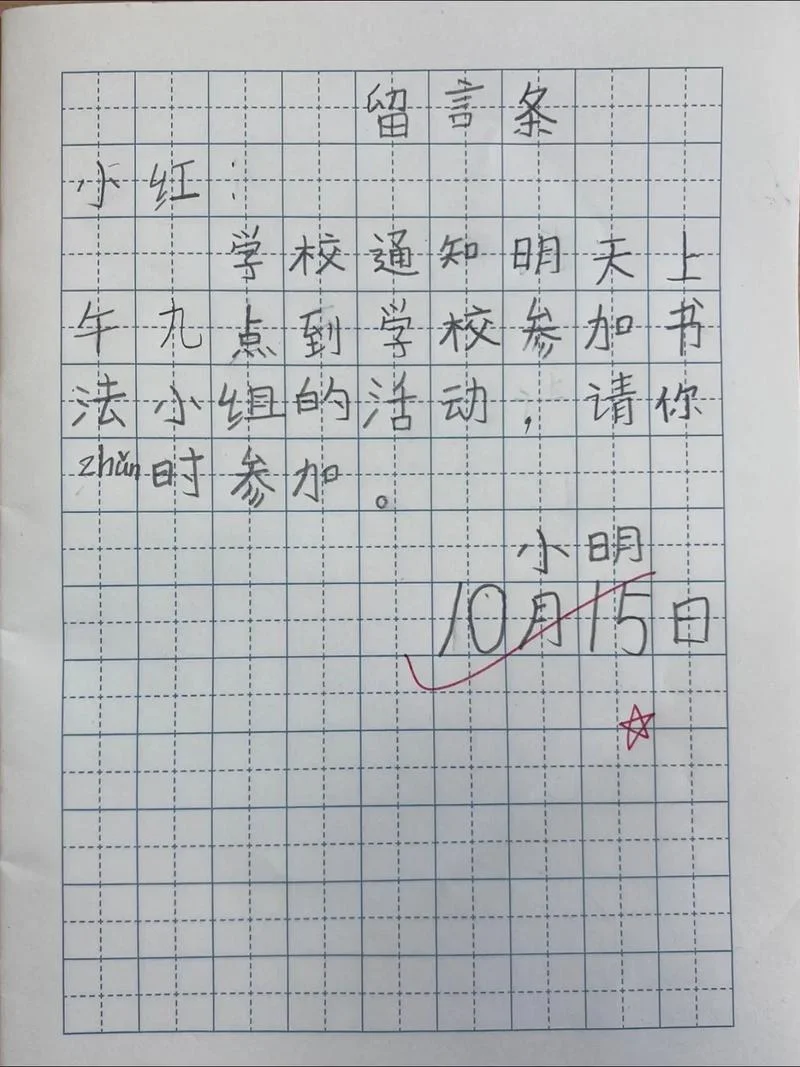 留言条
小红：
学校通知明天上
午九点到学校参加书
法小组的活动，请你
zhǔn时参加。
小明
10月15日